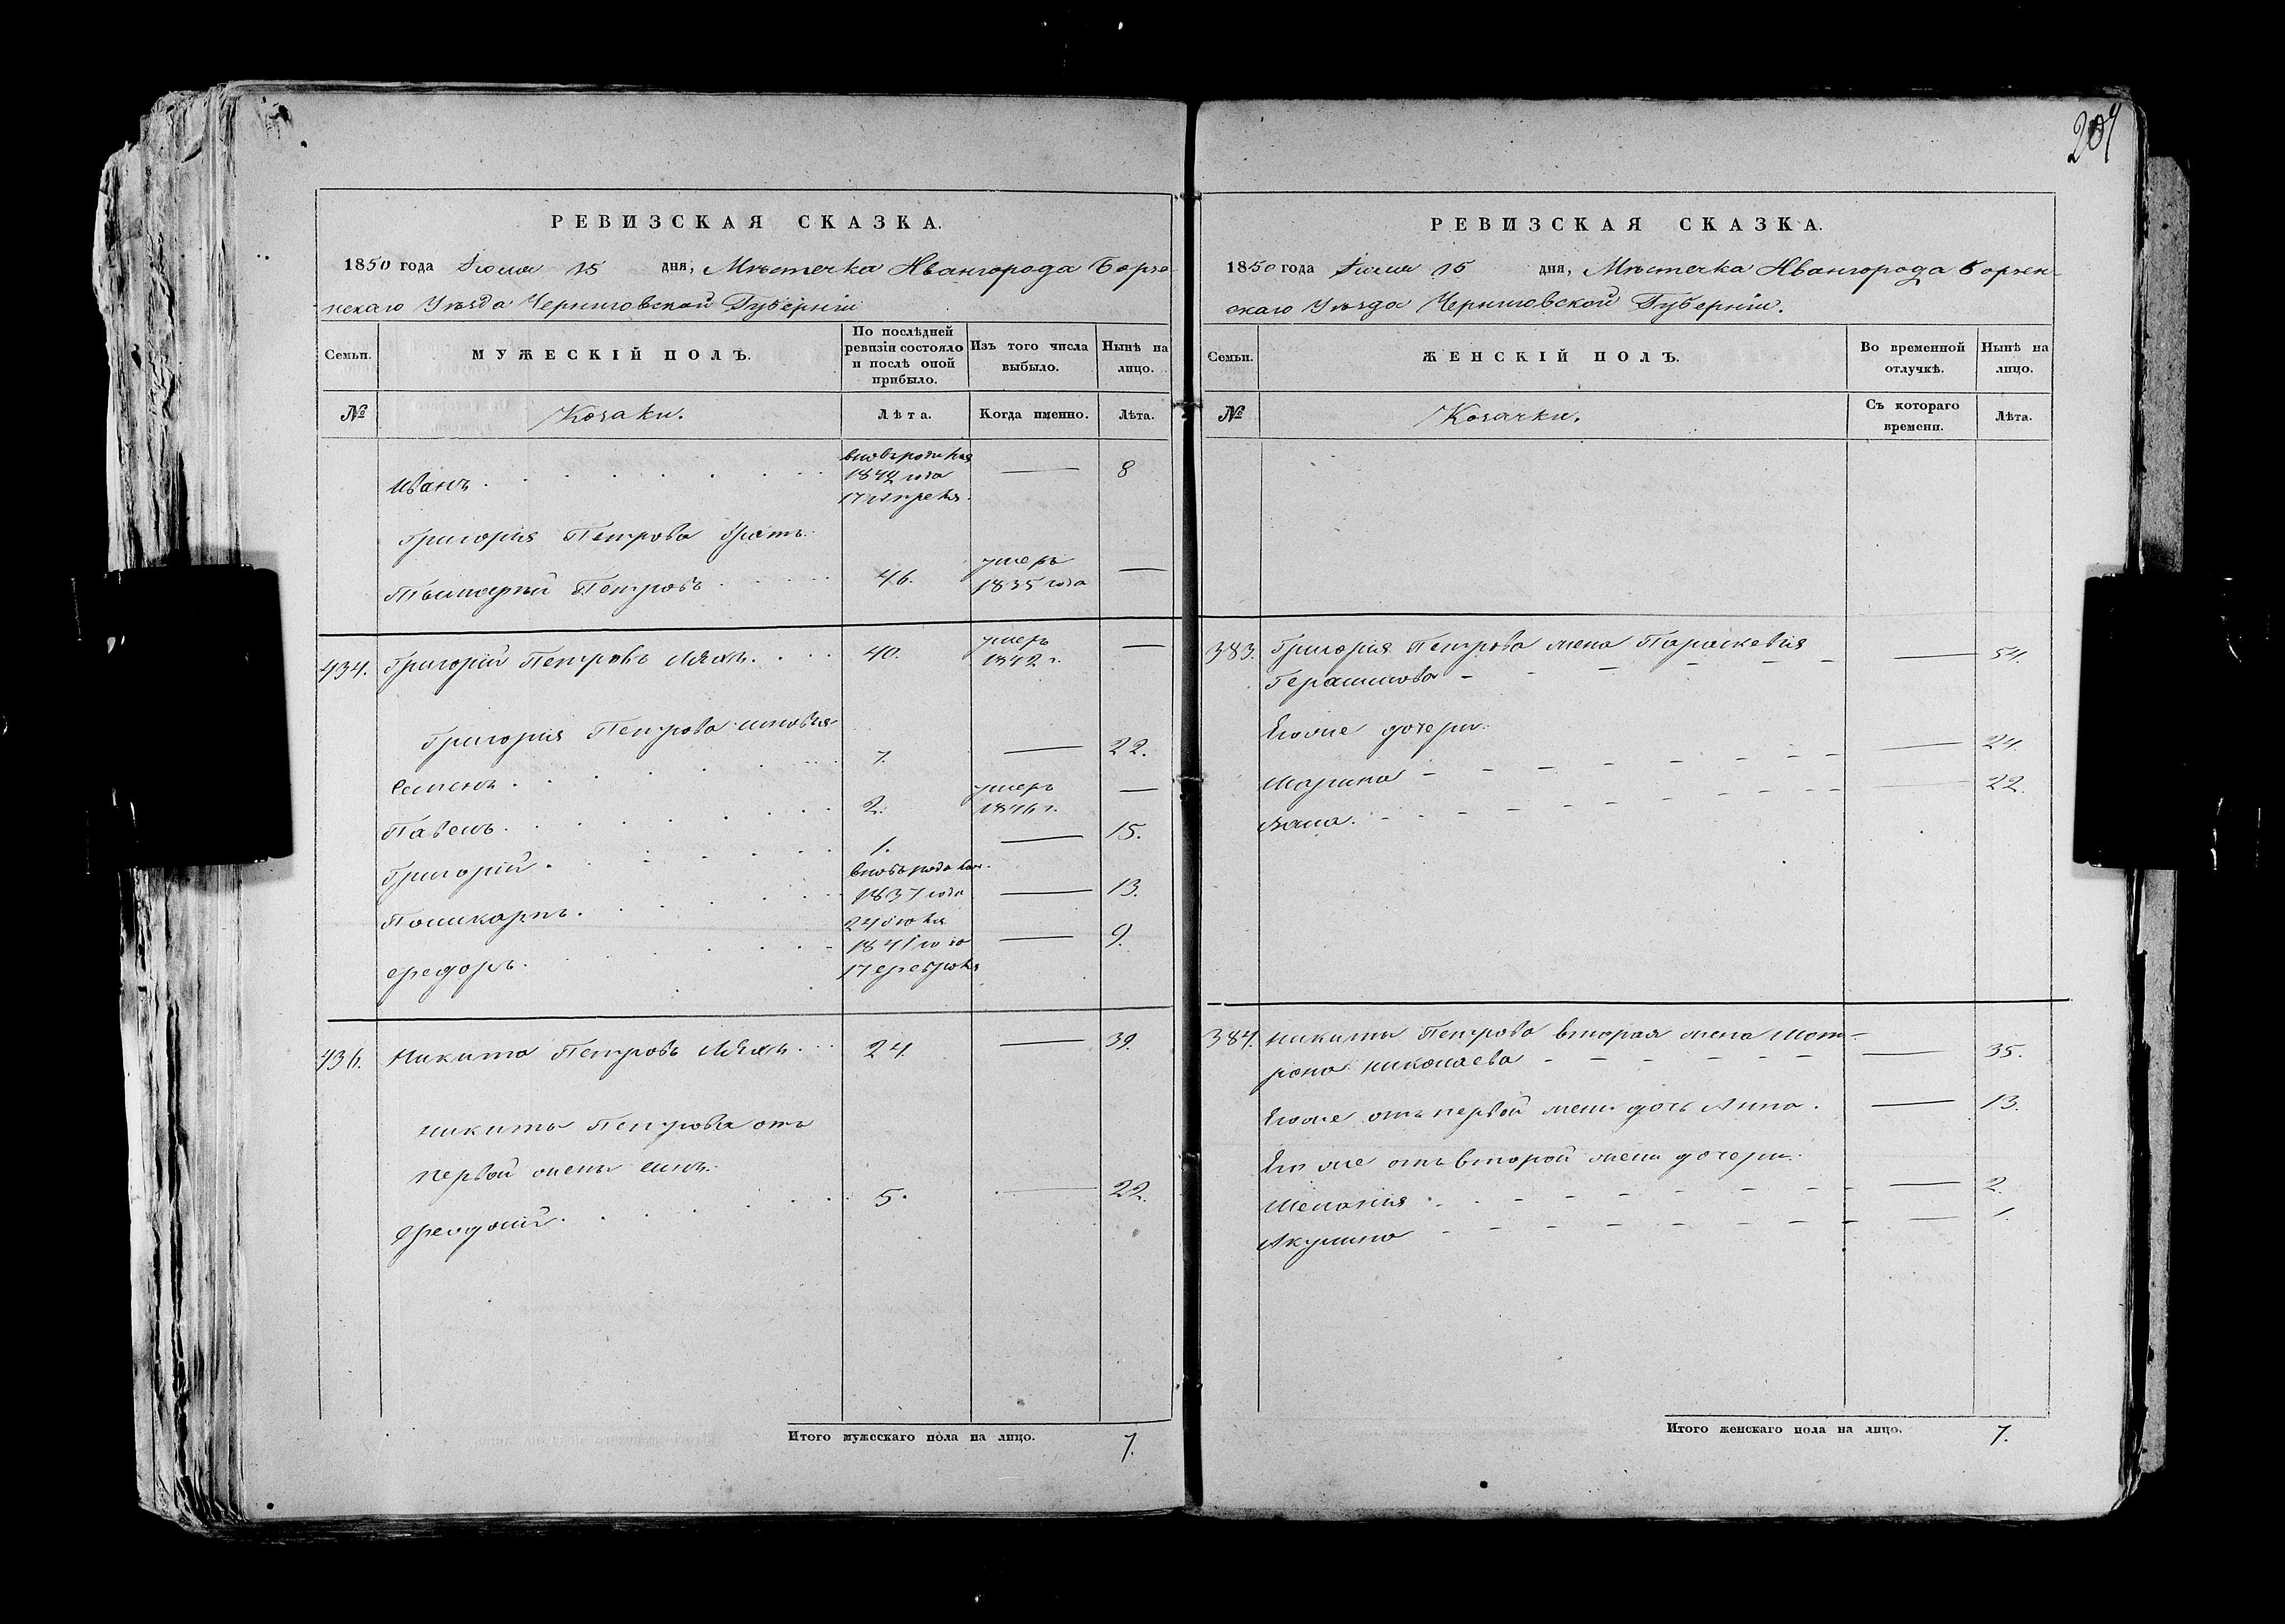 209
РЕВИЗСКАЯ СКАЗКА.
1850 года Іюля 15 дня, Мѣстечка Ивангорода Борзе-
нскаго Уѣзда Черниговской Губерніи
Семьи. МУЖЕСКІЙ ПОЛЪ. По послѣдней ревизіи состояло и послѣ оной прибыло. Изъ того числа выбыло. Нынѣ на лицо.
№ Козаки. Лѣта. Когда именно. Лѣта.
Иванъ. вновърожден 1842 года 17 Апреля. — 8
Григорія Петрова братъ:
Петровъ 46. умеръ 1835 года —
434. Григорій Петровъ Ляхъ. 40. умеръ 1842 г. —
Григорія Петрова сыновья
Семенъ. 7. — 22.
Павелъ. 2. умеръ 1846 г. —
Григорій. 1. — 15.
Поликарпъ. 1837 года 24 — 13.
Федоръ. 1841 года 17 февраля — 9.
436. Никита Петровъ Ляхъ. 24. — 39.
Никиты Петрова отъ
первой жены сынъ:
Феодосій. 5. — 22.
Итого мужескаго пола на лицо. 7.
РЕВИЗСКАЯ СКАЗКА.
1850 года Іюля 15 дня, Мѣстечка Ивангорода Борзен-
скаго Уѣзда Черниговской Губерніи.
Семьи. ЖЕНСКІЙ ПОЛЪ. Во временной отлучкѣ. Нынѣ на лицо.
№ Козачки. Съ котораго времени. Лѣта.
383. Григорія Петрова жена Параскевія
Герасимова — 54.
Егоже дочери:
Марина — 24.
Анна. — 22.
384. Никиты Петрова вторая жена Мот-
рона Николаева — 35.
Егоже отъ первой жены дочь Анна. — 13.
Его же отъ второй жены дочери:
Меланія — 2.
Акулина — 1.
Итого женскаго пола на лицо. 7.